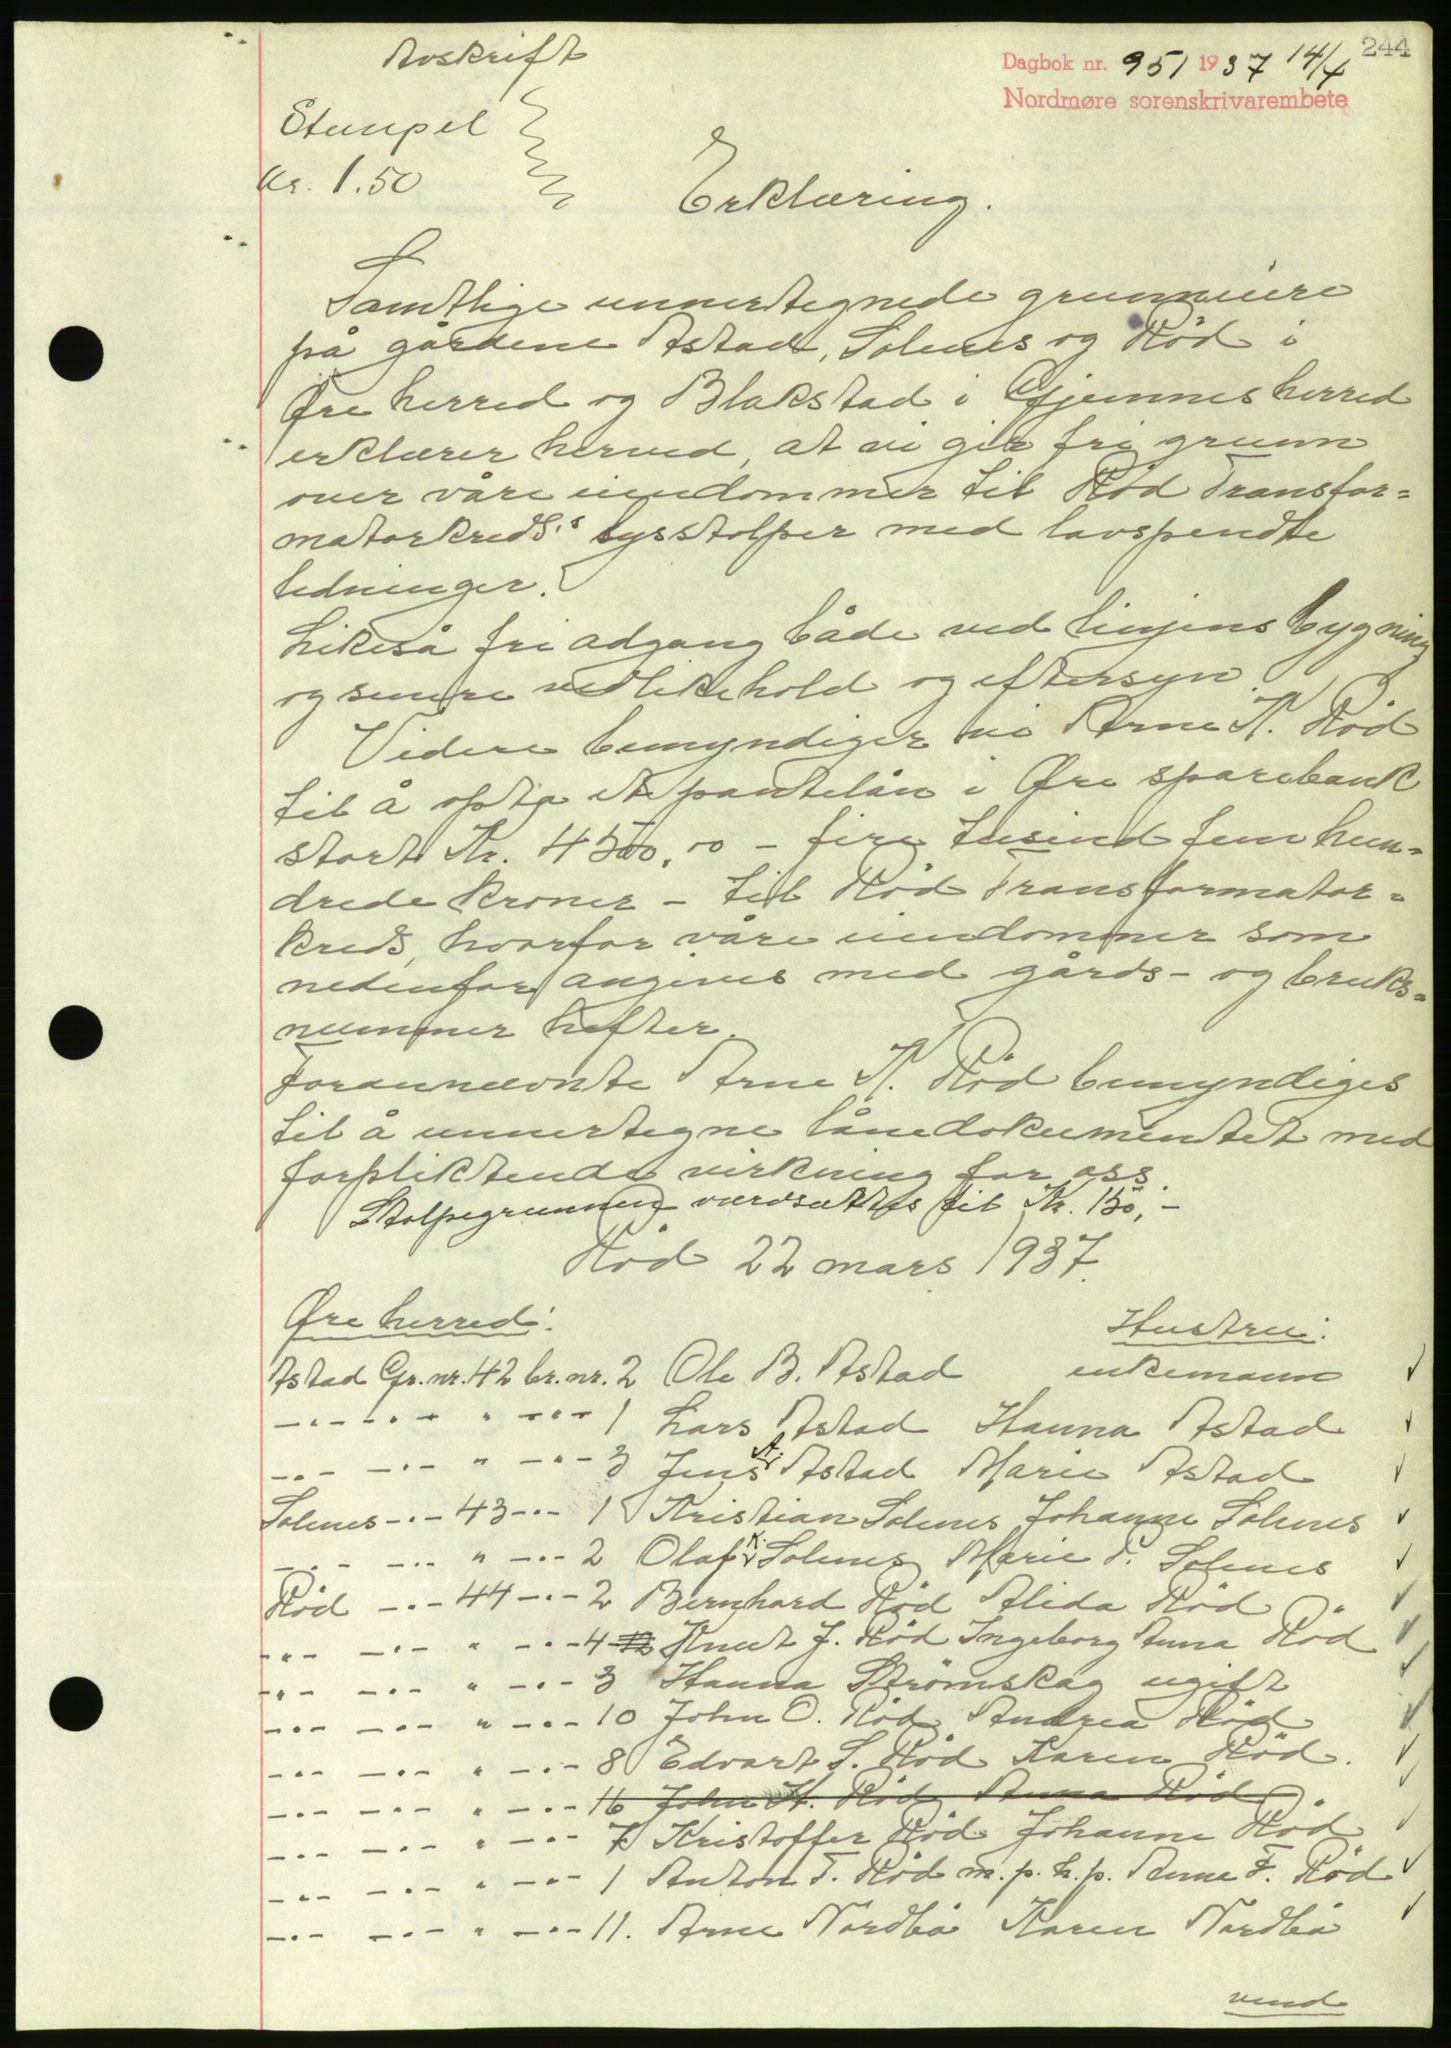 244
Avskrift
Dagbok nr. 951 1937 14/4
Nordmøre sorenskrivarembete
Stempel
Kr. 1.50
Erklæring.
Samtlige unnertegnede grunneiere
på gårdene Astad, Solenes og Röd i
Øre herred og Blakstad i Gjemnes herred
erklærer herved, at vi gir fri grunn
over våre eiendommer til Röd Transfor=
matorkreds's lysstolper med lavspendte
ledninger.
Likeså fri adgang både ved linjens bygning
og senere vedlikehold og eftersyn.
Videre bemyndiger vi Arne K. Röd
til å opta et pantelån i Øre sparebank
stort Kr. 4500,00 - fire tusind fem hun=
drede kroner - til Röd Transformator=
kreds, hvorfor våre eiendommer som
nedenfor angives med gårds- og bruks=
nummer hefter.
Forannevnte Arne K. Röd bemyndiges
til å unnertegne lånedokumentet med
forpliktende virkning for oss.
Stolpegrunnen verdsættes til Kr. 150,-
Röd 22 mars 1937.
Øre herred: Hustru:
Astad Gr. nr. 42 br. nr. 2 Ole B. Astad enkemann
-..- -..- " -..- 1 Lars Astad Hanna Astad
-..- -..- " -..- 3 Jens A. Astad Marie Astad
Solenes -..- 43 -..- 1 Kristian Solenes Johanne Solenes
-..- -..- " -..- 2 Olaf K. Solenes Marie F. Solenes
Röd -..- 44 -..- 2 Bernhard Röd Alida Röd
-..- -..- " -..- 4 Knut J. Röd Ingeborg Anna Röd
-..- -..- " -..- 3 Hanna Strömskag ugift
-..- -..- " -..- 10 John O. Röd Andrea Röd
-..- -..- " -..- 8 Edvart S. Röd Karen Röd.
-..- -..- " -..- 16 John H. Röd Anna Röd.
-..- -..- " -..- 7 Kristoffer Röd Johanne Röd
-..- -..- " -..- 1 Anton F. Röd m. p. h. p. Anne F. Röd
-..- -..- " -..- 11. Arne Nordbö Karen Nordbö
vend